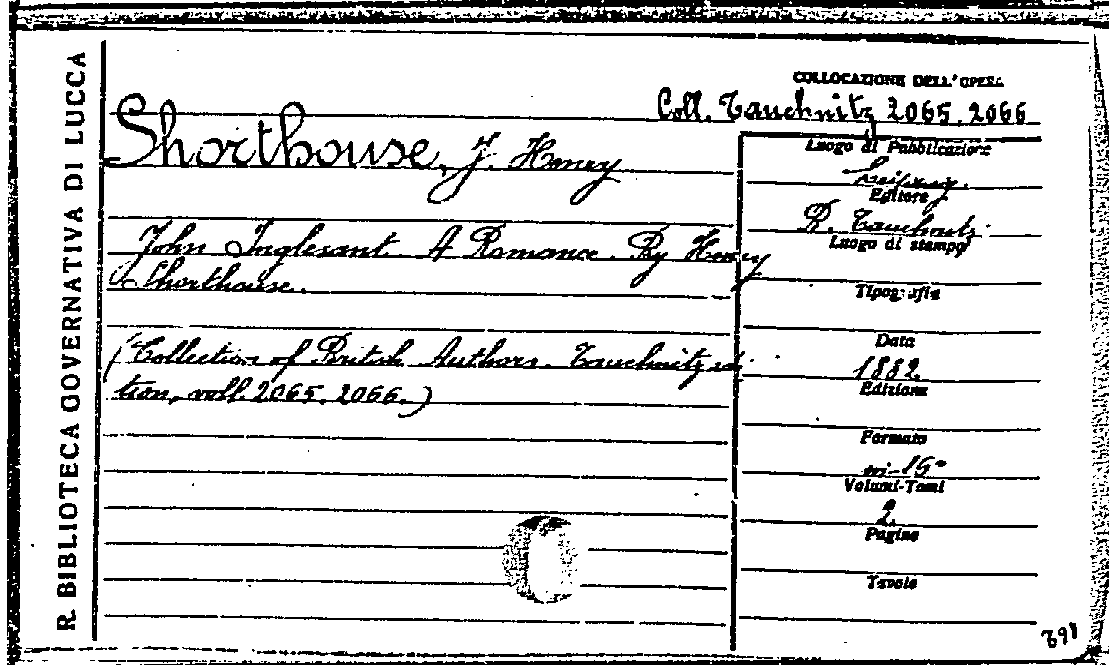 R. BIBLIOTECA GOVERNATIVA DI LUCCA
COLLOCAZIONE DELL'OPERA
Coll. Tauchnitz 2065. 2066
Shorthouse, J. Henry
John Inglesant. A Romance. By Henry
Shorthouse.
(Collection of British Authors. Tauchnitz edi
tion, voll. 2065. 2066.)
Luogo di Pubblicazione
Leipzig.
Editore
Tauchnitz.
Luogo di stampa
Tipografia
Data
1882.
Edizione
Formato
in-16°
Volumi-Tomi
2.
Pagine
Tavole